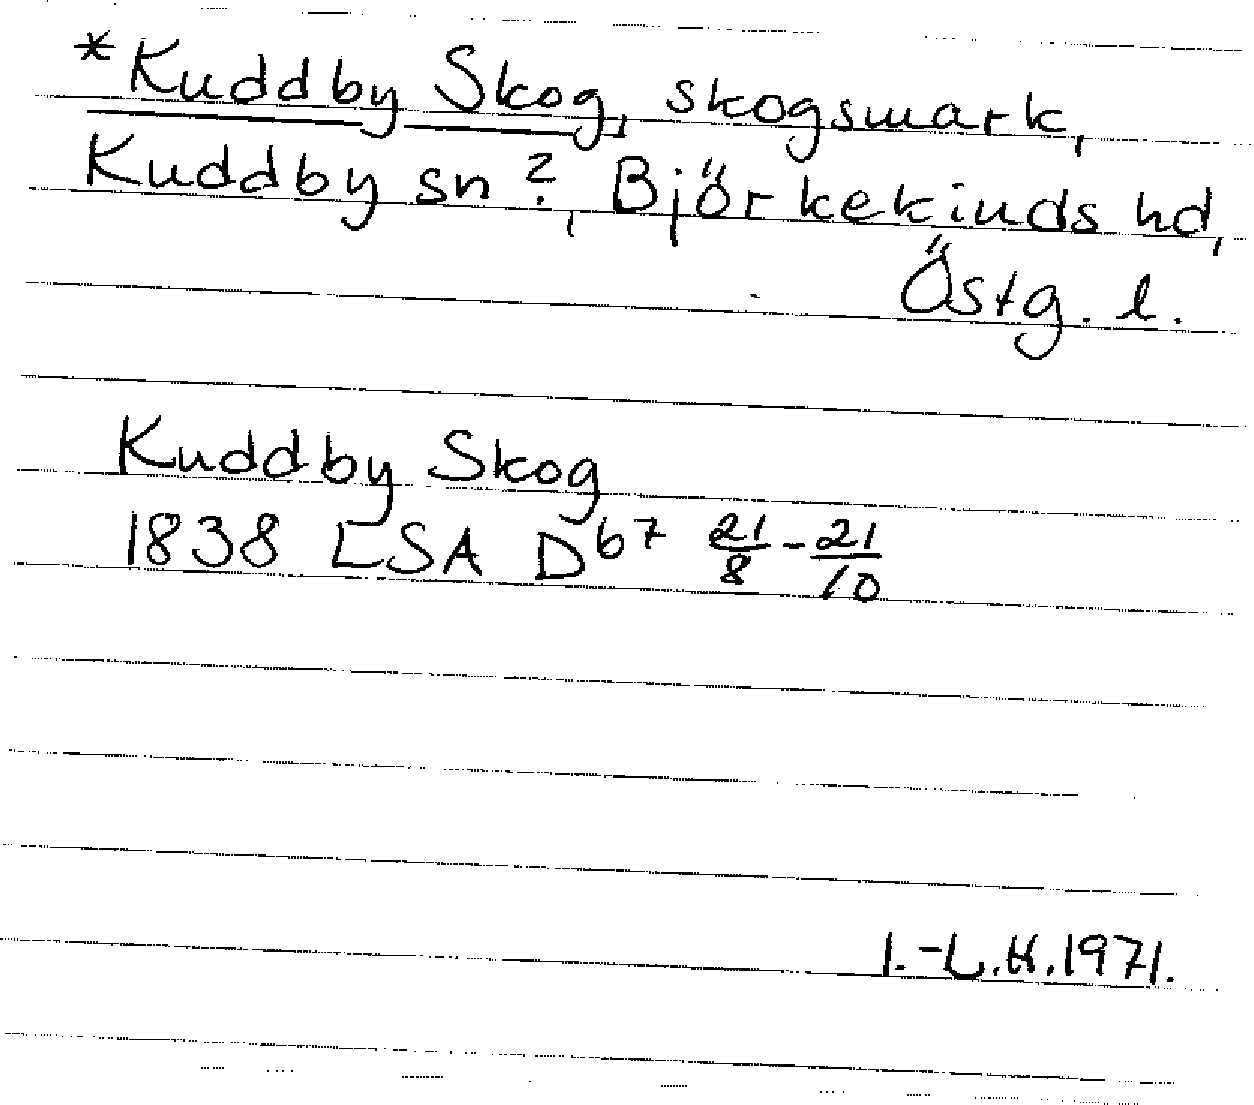 *Kuddby Skog, skogsmark,
Kuddby sn?, Björkekinds hd,
Östg. l.
Kuddby Skog
1838 LSA D67 21/8 - 21/10
I.-L.H.1971.